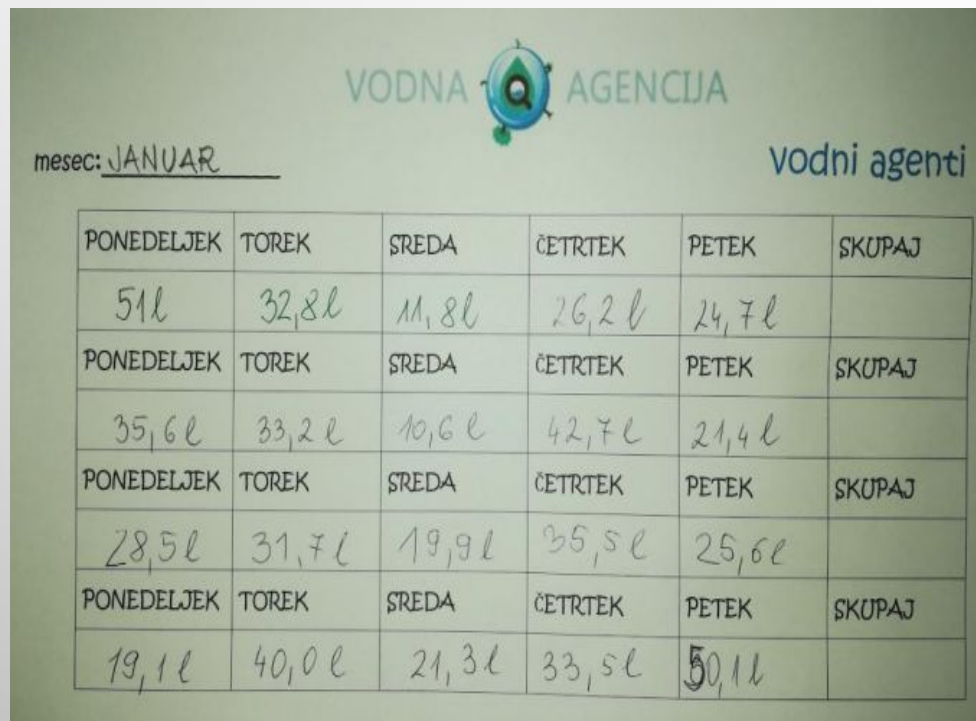 VODNA AGENCIJA
mesec: JANUAR
vodni agenti
PONEDELJEK TOREK SREDA ČETRTEK PETEK SKUPAJ
51l 32,8l 11,8l 26,2l 24,7l
PONEDELJEK TOREK SREDA ČETRTEK PETEK SKUPAJ
35,6l 33,2l 10,6l 42,7l 21,4l
PONEDELJEK TOREK SREDA ČETRTEK PETEK SKUPAJ
28,5l 31,7l 19,9l 35,5l 25,6l
PONEDELJEK TOREK SREDA ČETRTEK PETEK SKUPAJ
19,1l 40,0l 21,3l 33,5l 50,1l